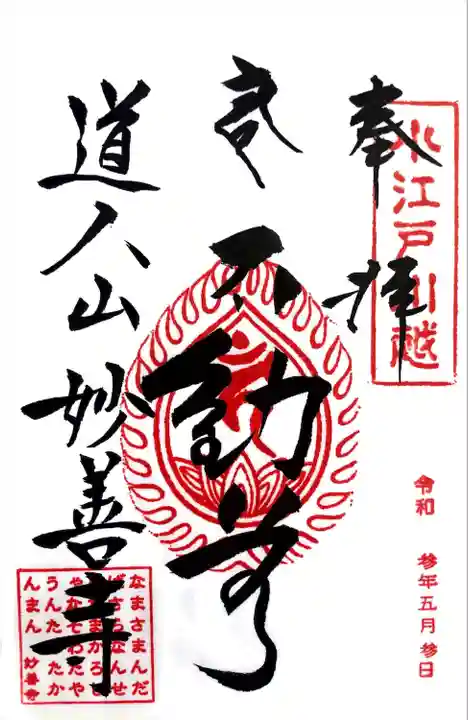 奉拝
小江戸川越
令和 参年五月参日
不動尊
道人山妙善寺
なまさまんだ
ばさらなんせ
んだまかろし
ゃやだそわたや
うんたらたか
んまん 妙善寺